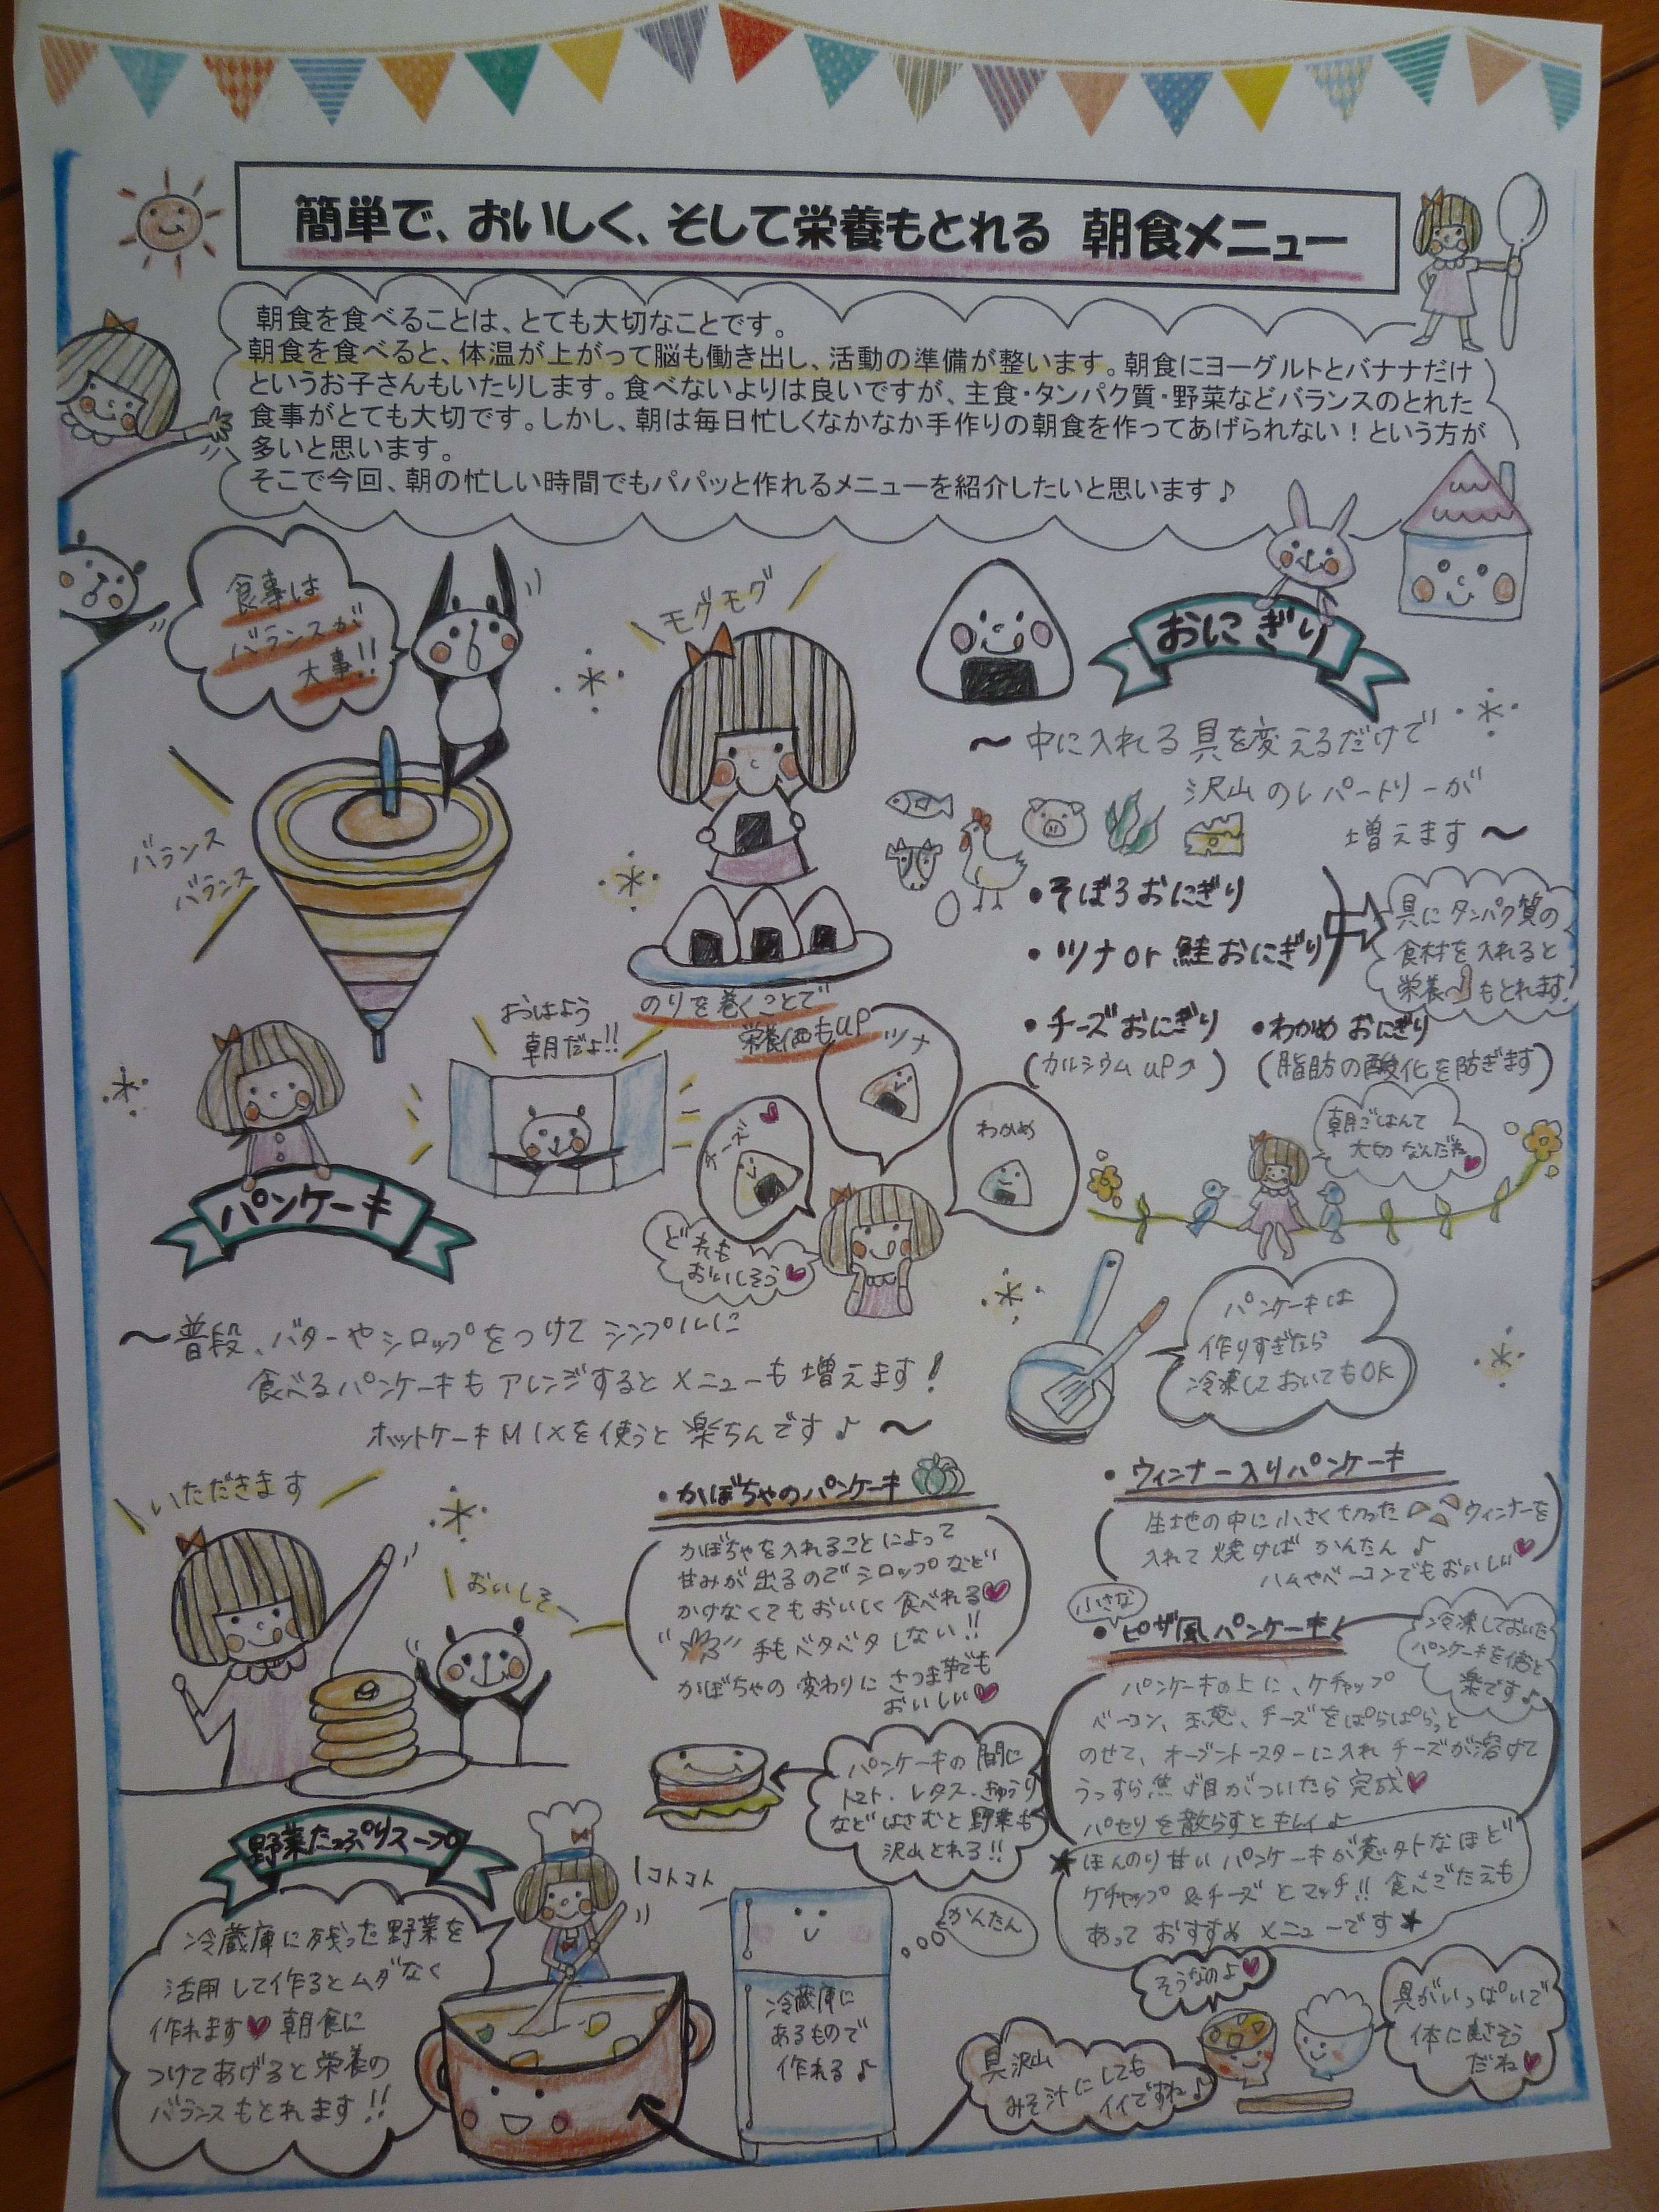 簡単で、おいしく、そして栄養もとれる 朝食メニュー
朝食を食べることは、とても大切なことです。
朝食を食べると、体温が上がって脳も働き出し、活動の準備が整います。朝食にヨーグルトとバナナだけ
というお子さんもいたりします。食べないよりは良いですが、主食・タンパク質・野菜などバランスのとれた
食事がとても大切です。しかし、朝は毎日忙しくなかなか手作りの朝食を作ってあげられない！という方が
多いと思います。
そこで今回、朝の忙しい時間でもパパッと作れるメニューを紹介したいと思います♪
食事は
バランスが
大事!!
バランス
バランス
モグモグ
のりを巻くことで
栄養価もUP
おにぎり
〜中に入れる具を変えるだけで
沢山のレパートリーが
増えます〜
・そぼろおにぎり
・ツナor鮭おにぎり
具にタンパク質の
食材を入れると
栄養もとれます!
・チーズおにぎり
(カルシウムUP↗)
・わかめおにぎり
(脂肪の酸化を防ぎます)
おはよう
朝だよ!!
チーズ
ツナ
わかめ
どれも
おいしそう♥
朝ごはんて
大切なんだね♥
パンケーキ
〜普段、バターやシロップをつけてシンプルに
食べるパンケーキもアレンジするとメニューも増えます!
ホットケーキMIXを使うと楽ちんです♪〜
パンケーキは
作りすぎたら
冷凍しておいてもOK
いただきます
おいしそー
・かぼちゃのパンケーキ
かぼちゃを入れることによって
甘みが出るのでシロップなど
かけなくてもおいしく食べれる♥
手もベタベタしない!!
かぼちゃの変わりにさつま芋でも
おいしい♥
・ウィンナー入りパンケーキ
生地の中に小さく切ったウィンナーを
入れて焼けばかんたん♪
ハムやベーコンでもおいしい♥
小さな
・ピザ風パンケーキ
冷凍しておいた
パンケーキを使うと
楽です♪
パンケーキの上に、ケチャップ
ベーコン、玉葱、チーズをぱらぱらっと
のせて、オーブントースターに入れチーズが溶けて
うっすら焦げ目がついたら完成♥
パセリを散らすとキレイ♪
★ほんのり甘いパンケーキが意外なほど
ケチャップ&チーズとマッチ!!食べごたえも
あっておすすめメニューです★
パンケーキの間に
トマト・レタス・きゅうり
などはさむと野菜も
沢山とれる!!
野菜たっぷりスープ
冷蔵庫に残った野菜を
活用して作るとムダなく
作れます♥朝食に
つけてあげると栄養の
バランスもとれます!!
コトコト
冷蔵庫に
あるもので
作れる♪
かんたん
具沢山
みそ汁にしても
イイですね♪
そうなのよ♥
具がいっぱいで
体に良さそう
だね♥